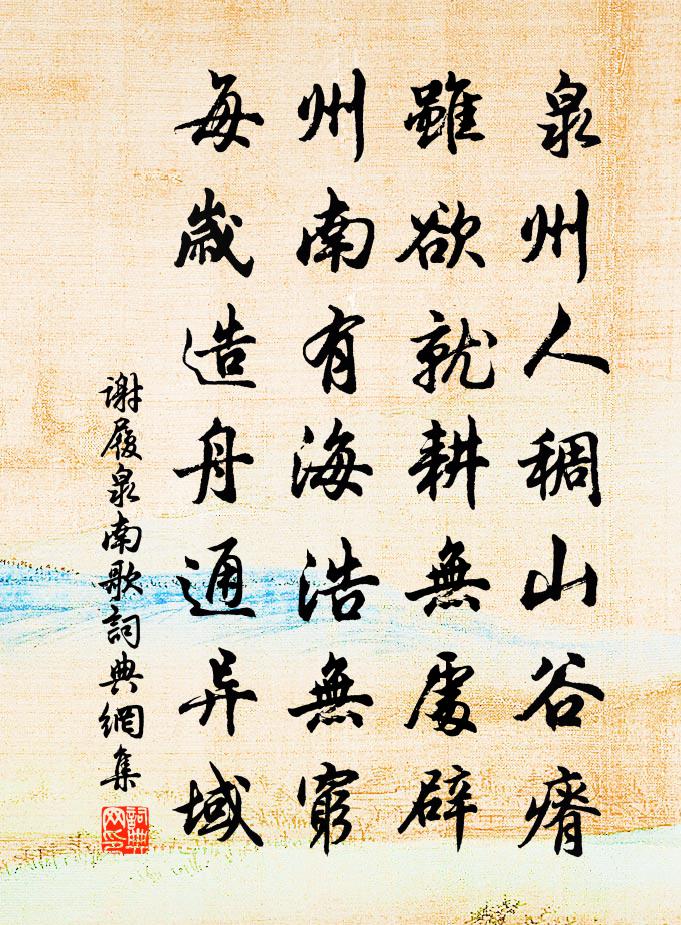 泉州人稠山谷瘠
雖欲就耕無處辟
州南有海浩無窮
每歲造舟通异域
谢履泉南歌詞典網集
詞典
网印